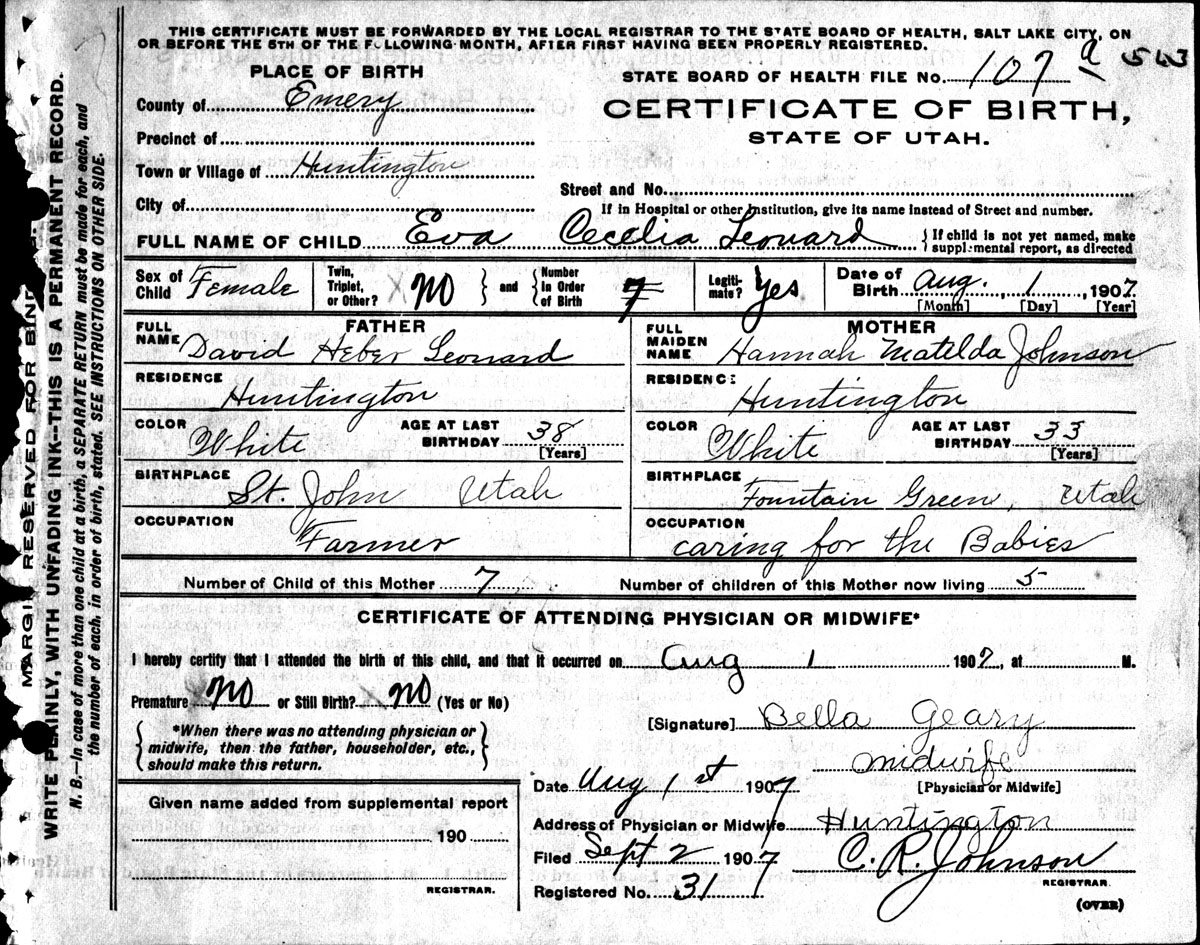 THIS CERTIFICATE MUST BE FORWARDED BY THE LOCAL REGISTRAR TO THE STATE BOARD OF HEALTH, SALT LAKE CITY, ON
OR BEFORE THE 5TH OF THE FOLLOWING MONTH, AFTER FIRST HAVING BEEN PROPERLY REGISTERED.
PLACE OF BIRTH
STATE BOARD OF HEALTH FILE No. 107 a 543
County of Emery
CERTIFICATE OF BIRTH,
Precinct of
STATE OF UTAH.
Town or Village of Huntington
Street and No.
City of
If in Hospital or other Institution, give its name instead of Street and number.
FULL NAME OF CHILD Eva Cecelia Leonard { If child is not yet named, make
supplemental report, as directed
Sex of Child Female Twin, Triplet, or Other? X NO } and { Number in Order of Birth 7 Legiti- mate? Yes Date of Birth Aug. 1, 1907
[Month] [Day] [Year]
FATHER
FULL NAME David Heber Leonard
RESIDENCE Huntington
COLOR White AGE AT LAST BIRTHDAY 38
[Years]
BIRTHPLACE St. John Utah
OCCUPATION Farmer
MOTHER
FULL MAIDEN NAME Hannah Matilda Johnson
RESIDENCE Huntington
COLOR White AGE AT LAST BIRTHDAY 33
[Years]
BIRTHPLACE Fountain Green, Utah
OCCUPATION caring for the Babies
Number of Child of this Mother 7 Number of children of this Mother now living 5
CERTIFICATE OF ATTENDING PHYSICIAN OR MIDWIFE*
I hereby certify that I attended the birth of this child, and that it occurred on Aug 1 1907, at M.
Premature X NO or Still Birth? X NO (Yes or No)
{ *When there was no attending physician or
midwife, then the father, householder, etc.,
should make this return. }
[Signature] Bella Geary
midwife
[Physician or Midwife]
Date Aug 1st 1907
Address of Physician or Midwife Huntington
Filed Sept 2 1907 C. R. Johnson
REGISTRAR.
Registered No. 31
(OVER)
Given name added from supplemental report
190
REGISTRAR.
MARGIN RESERVED FOR BIN
WRITE PLAINLY, WITH UNFADING INK--THIS IS A PERMANENT RECORD.
N. B.--In case of more than one child at a birth, a SEPARATE RETURN must be made for each, and
the number of each, in order of birth, stated. SEE INSTRUCTIONS ON OTHER SIDE.